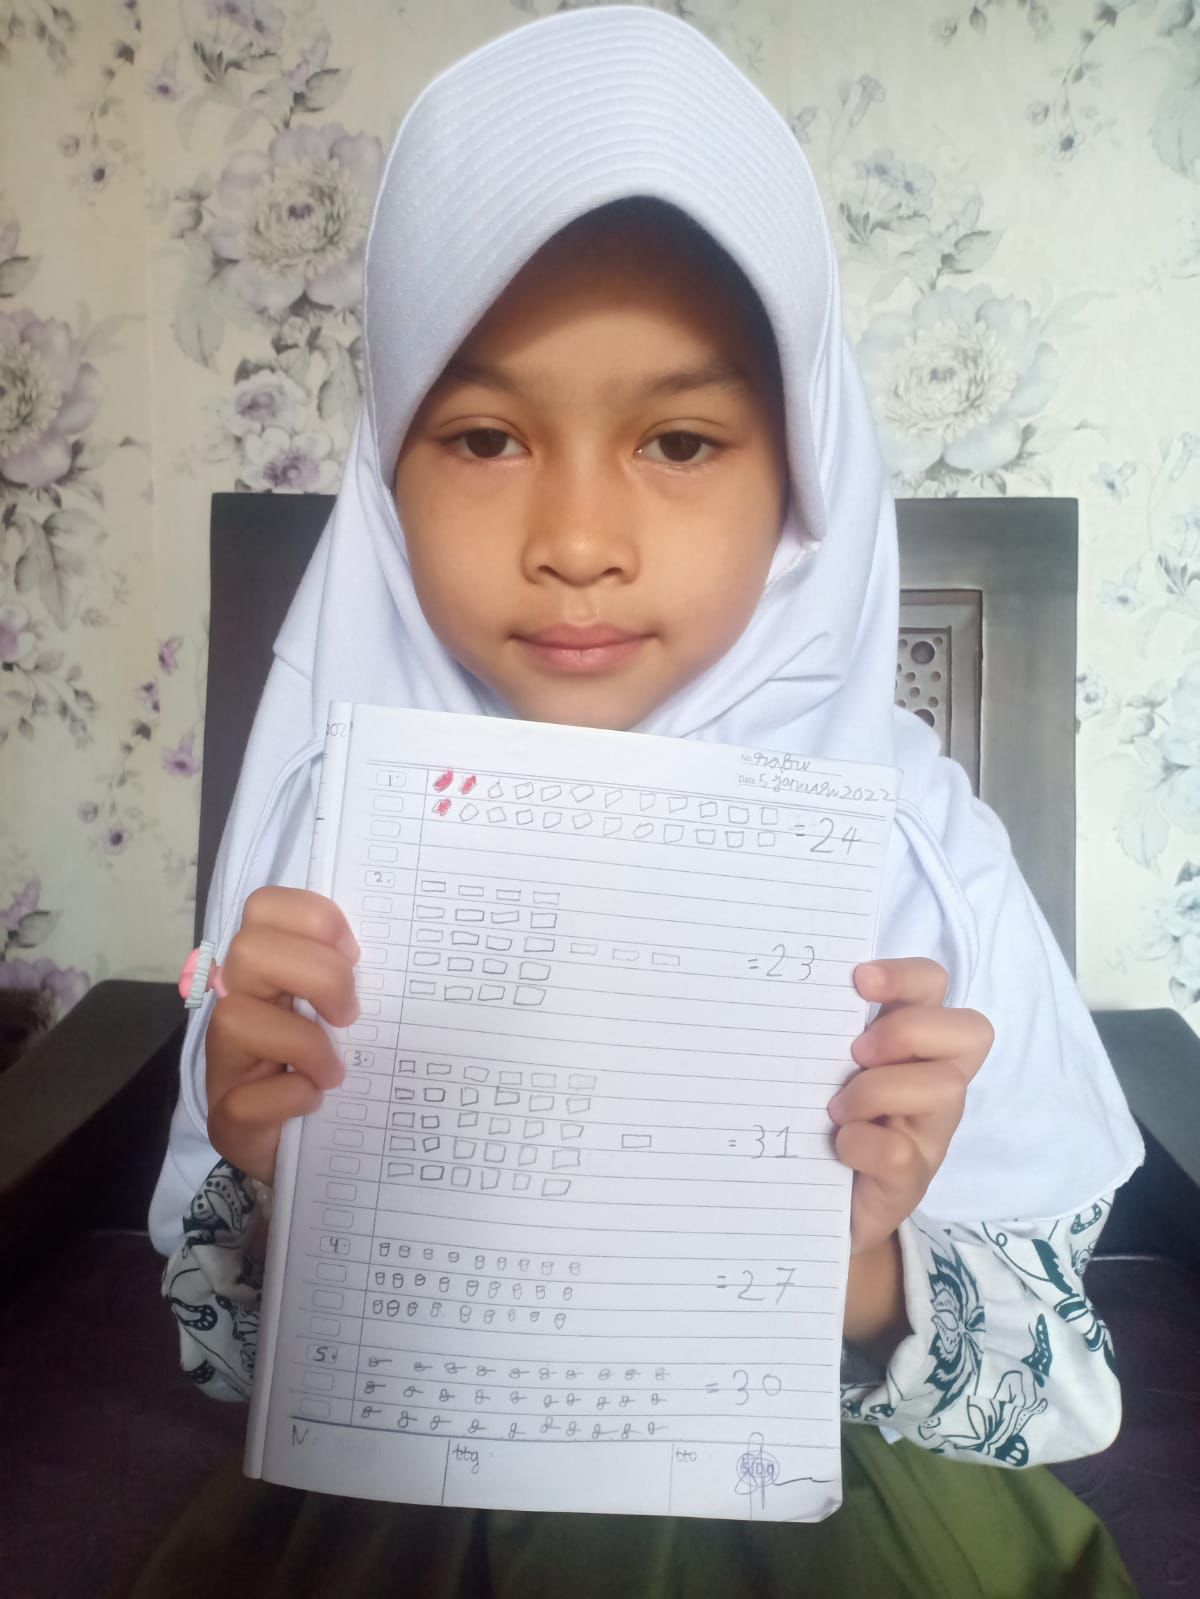 No. Rabu
Date 5 januari 2022
1. = 24
2. = 23
3. = 31
4. = 27
5. = 30
N ttg tto